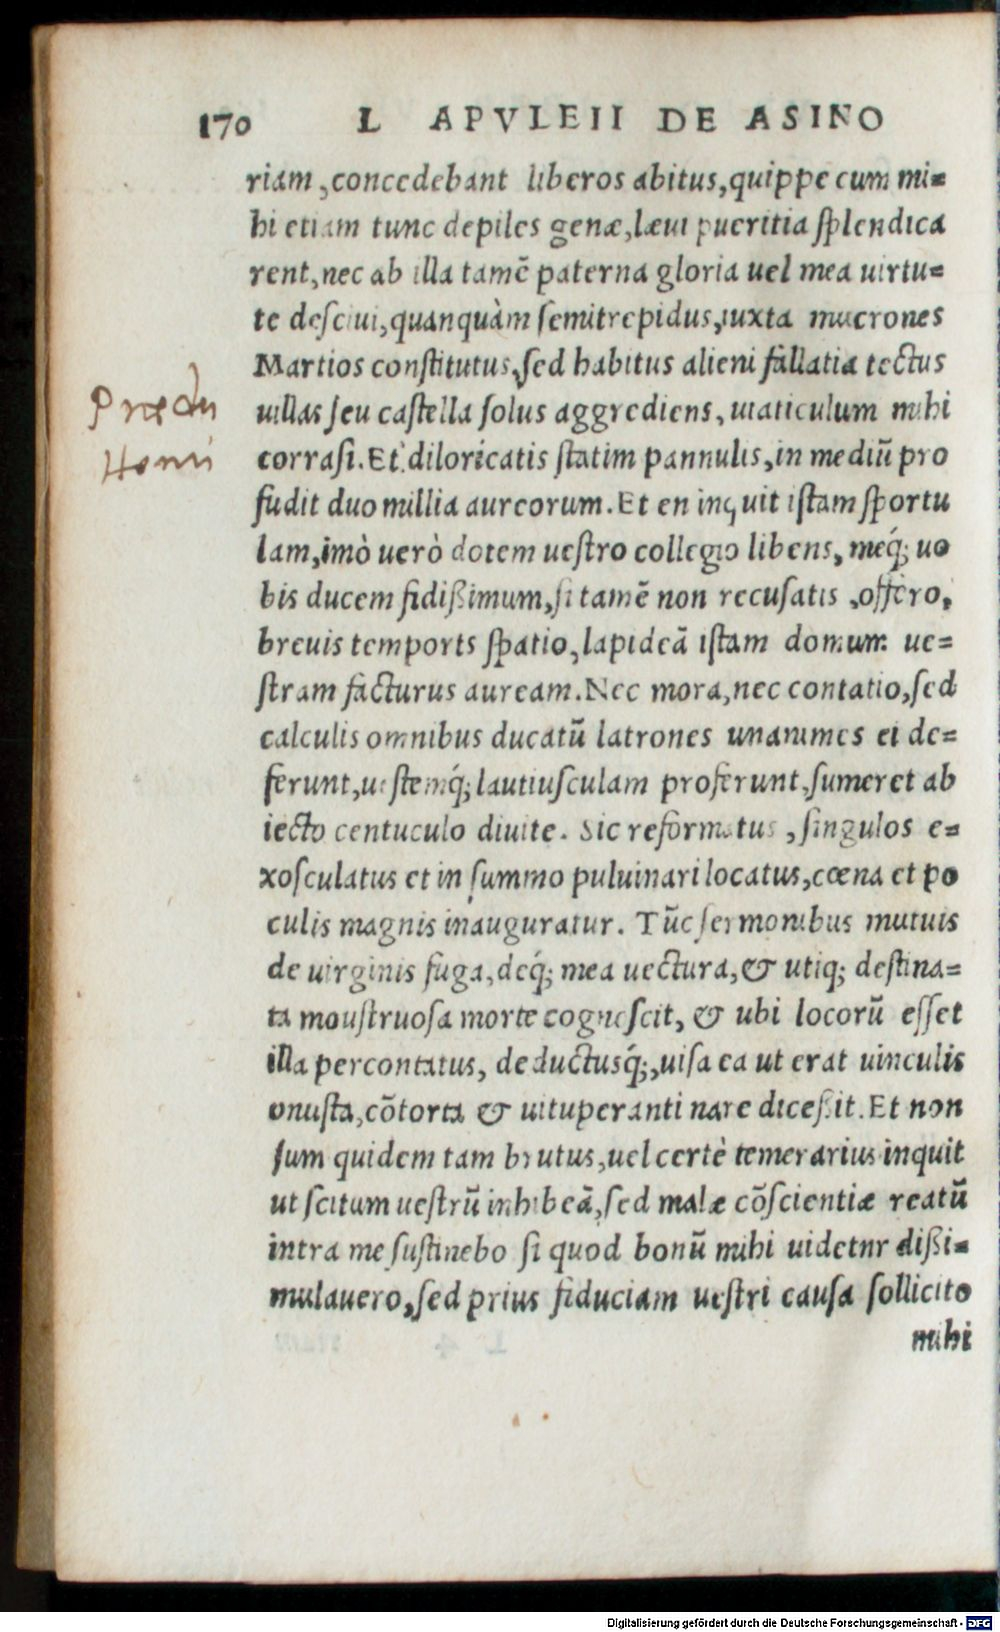 170 L APVLEII DE ASINO
riam, concedebant liberos abitus, quippe cum mi=
hi etiam tunc depiles genæ, læui pueritia ſplendica
rent, nec ab illa tamē paterna gloria uel mea uirtu=
te deſciui, quanquàm ſemitrepidus, iuxta mucrones
Martios conſtitutus, ſed habitus alieni fallatia tectus
uillas ſeu caſtella ſolus aggrediens, uiaticulum mihi
corraſi. Et diloricatis ſtatim pannulis, in mediū pro
fudit duo millia aureorum. Et en inquit iſtam ſportu
lam, imò uerò dotem ueſtro collegio libens, meq́; uo
bis ducem fidißimum, ſi tamē non recuſatis, offero,
breuis temports ſpatio, lapideā iſtam domum ue=
ſtram facturus auream. Nec mora, nec contatio, ſed
calculis omnibus ducatū latrones unanimes ei de=
ferunt, ueſtemq́; lautiuſculam proferunt, ſumeret ab
iecto centuculo diuite. Sic reformatus, ſingulos e=
xoſculatus et in ſummo puluinari locatus, cœna et po
culis magnis inauguratur. Tūc ſermonibus mutuis
de uirginis fuga, deq́; mea uectura, & utiq; deſtina=
ta mouſtruoſa morte cognoſcit, & ubi locorū eſſet
illa percontatus, deductusq́;, uiſa ea ut erat uinculis
onuſta, cōtorta & uituperanti nare diceßit. Et non
ſum quidem tam brutus, uel certè temerarius inquit
ut ſcitum ueſtrū inhibeā, ſed malæ cōſcientiæ reatū
intra me ſuſtinebo ſi quod bonū mihi uidetnr dißi=
mulauero, ſed prius fiduciam ueſtri cauſa ſollicito
mihi
Digitalisierung gefördert durch die Deutsche Forschungsgemeinschaft - DFG